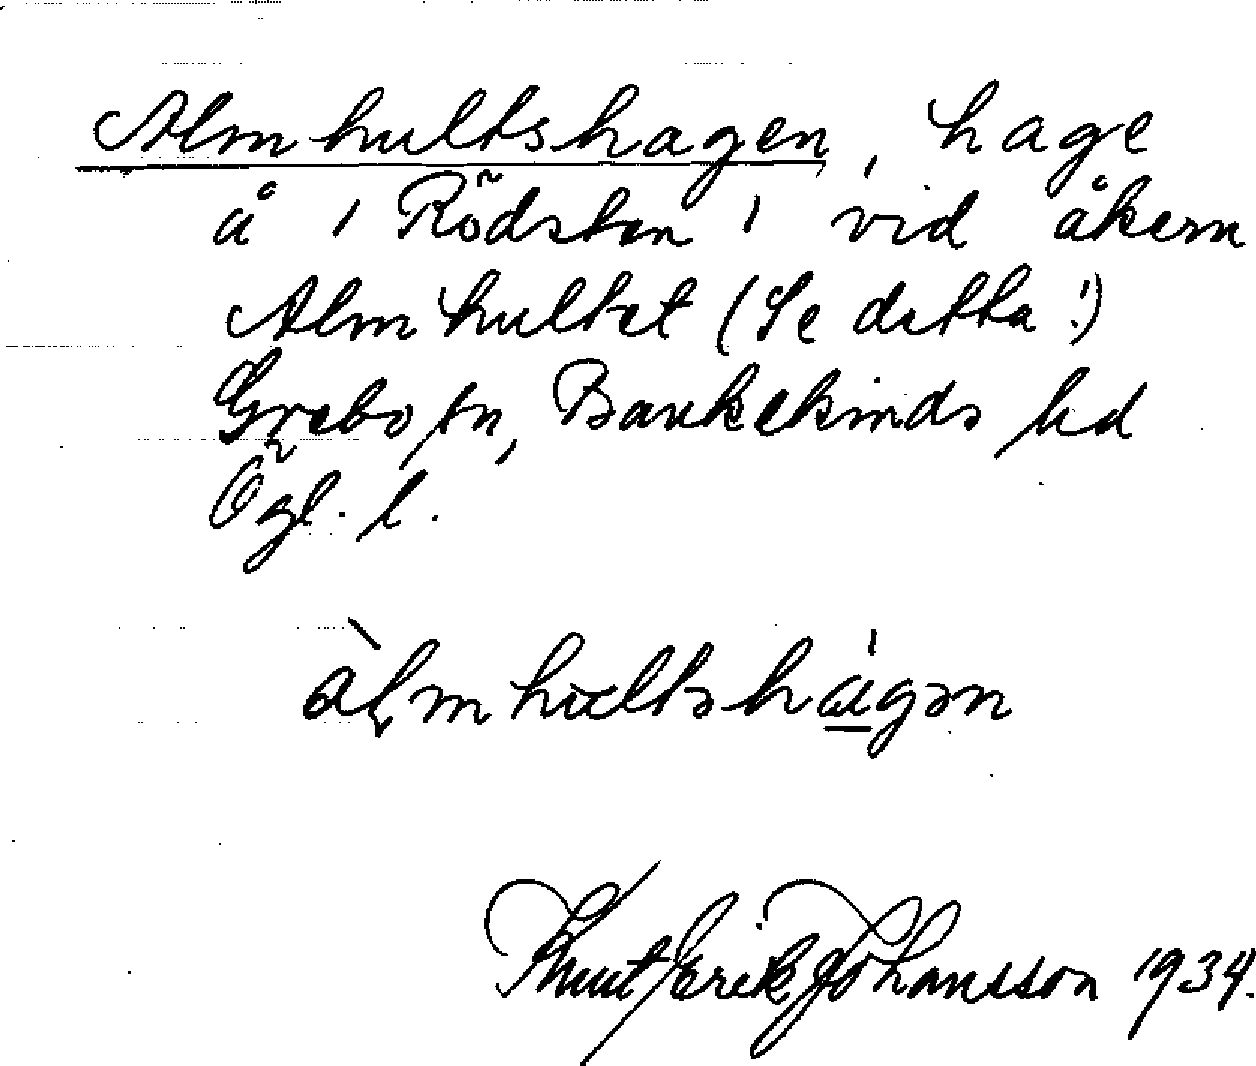 Almhultshagen, hage
å 1 Rödsten 1 vid åkern
Almhultet (Se detta!)
Grebo sn, Bankekinds hd
Ögl. l.
àlmhultshágən
Knut Erik Johansson 1934.